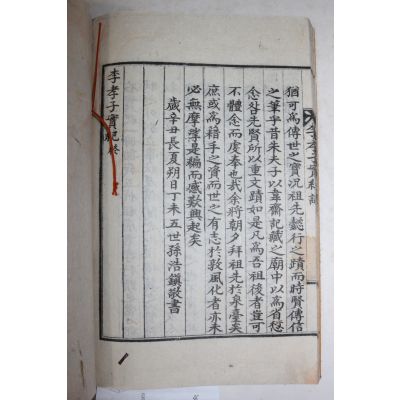 猶可爲傳世之實況祖先懿行之蹟而時賢傳信
之筆乎昔朱夫子以韋齋記藏之廟中以爲省愆
念咎先賢所以重文蹟如是凡爲吾祖後者豈可
不體念而虔奉也哉余將朝夕拜祖先於泉臺矣
庶或爲藉手之資而世之有志於敦風化者亦未
必無摩挲是編而感歎興起矣
歲辛丑長夏朔日丁未五世孫浩鎭敬書
李孝子實記終